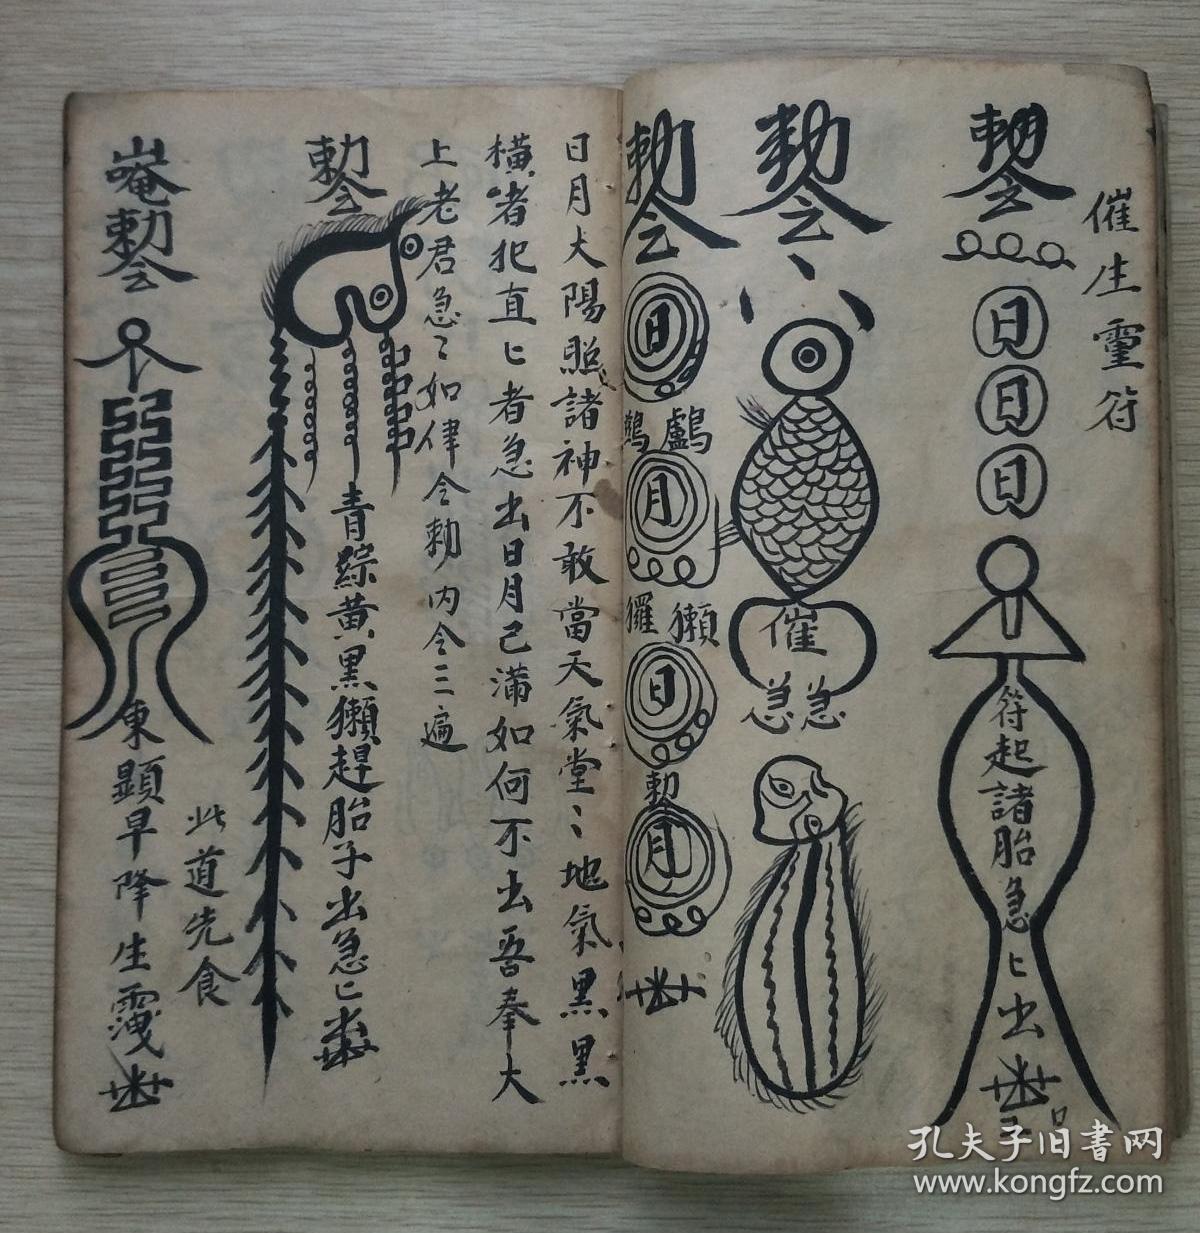 催生靈符
勅令
日
日
日
符起諸胎急匕出
勅令
催
急急
勅令
日
鸕
月
獺
日
勅
月
日月太陽照諸神不敢當天氣堂〻地氣黑黑
橫者犯直匕者急出日月已滿如何不出吾奉大
上老君急〻如律令勅內令三遍
勅令
青綜黃黑獺趕胎子出急匕
此道先食
唵勅令
東顕早降生
孔夫子旧書网
www.kongfz.com